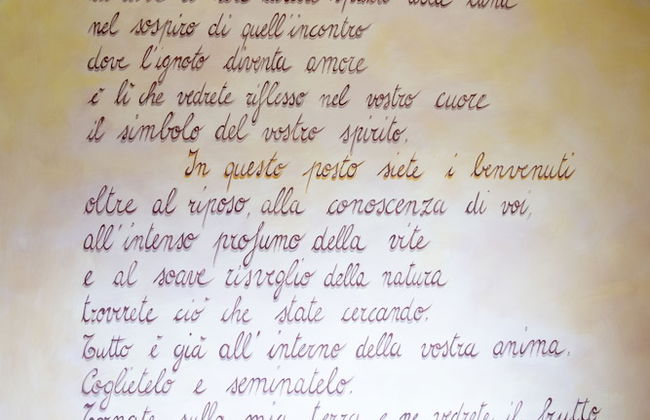 dove il sole spazio alla luna
nel sospiro di quell'incontro
dove l'ignoto diventa amore
è lì che vedrete riflesso nel vostro cuore
il simbolo del vostro spirito.
In questo posto siete i benvenuti
oltre al riposo, alla conoscenza di voi,
all'intenso profumo della vite
e al soave risveglio della natura
troverete ciò che state cercando.
Tutto è già all'interno della vostra anima.
Coglietelo e seminatelo.
Tornate sulla mia terra e ne vedrete il frutto